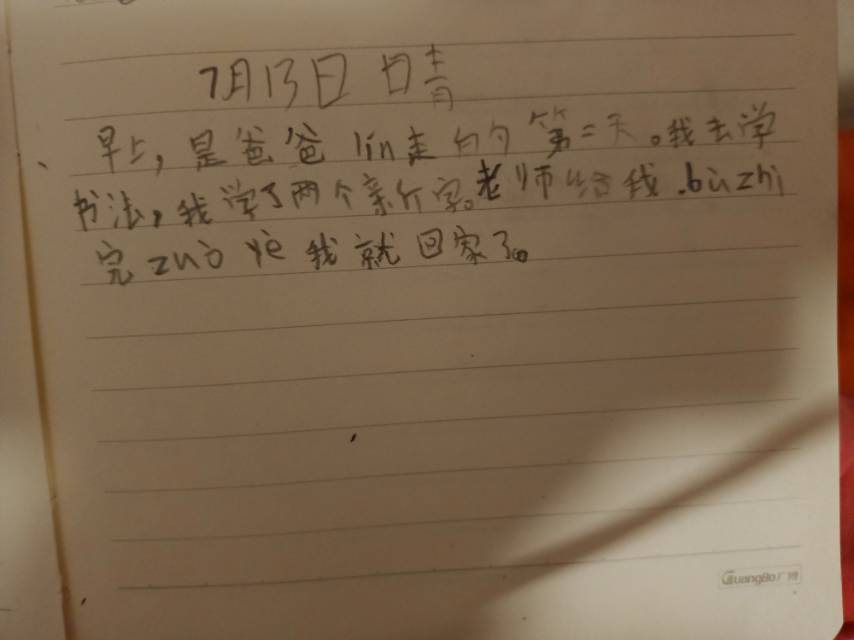 7月13日 晴
早上,是爸爸lin走的第二天。我去学
书法,我学了两个新个字。老师给我.bùzhì
完zuò yè我就回家了。
GuangBo广博